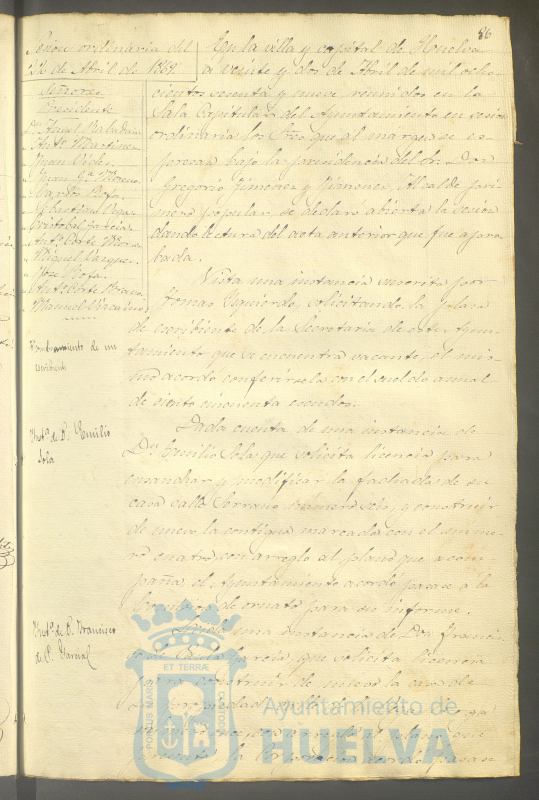 86
Sesion ordinaria del
22 de Abril de 1869.
Señores
Presidente
Juan
Juan Gª Moreno
Cristobal Garcia
Antº Corte
Miguel Vazquez
Jose Rofa
Antº Corte Bravo
Manuel Vizcaino
En la villa y capital de Huelva
a veinte y dos de Abril de mil ocho
cientos sesenta y nueve reunidos en la
Sala Capitular del Ayuntamiento en sesion
ordinaria los Sres que al margen se es
presan bajo la presidencia del Sr. Don
Gregorio Jimenez y Alcalde pri
mero popular, se declaró abierta la sesion
dando lectura del acta anterior que fue apro
bada.
Nombramiento de un
escribiente
Vista una instancia suscrita por
Tomas Izquierdo, solicitando la plaza
de escribiente de la Secretaria de este Ayun
tamiento que se encuentra vacante, el mis
mo acordó conferirsela con el sueldo anual
de ciento cincuenta escudos.
Instª de D. Emilio
Sola
Dada cuenta de una instancia de
Dn Emilio Sola que solicita licencia para
ensanchar y modificar la fachada de su
casa calle Serrano número seis, y construir
de nuevo la contigua marcada con el núme
ro cuatro con arreglo al plano que acom
paña el Ayuntamiento acordó pasase á la
Comision de ornato para su informe.
Instª de D. Francisco
de P. Garcia
una instancia de Don Francis
co de Paula Garcia que solicita licencia
para construir de nuevo la casa de
su propiedad calle
la Corporacion acordó pasase
PORTUS MARIS
ET TERRAE
CUSTODIA
Ayuntamiento de
HUELVA